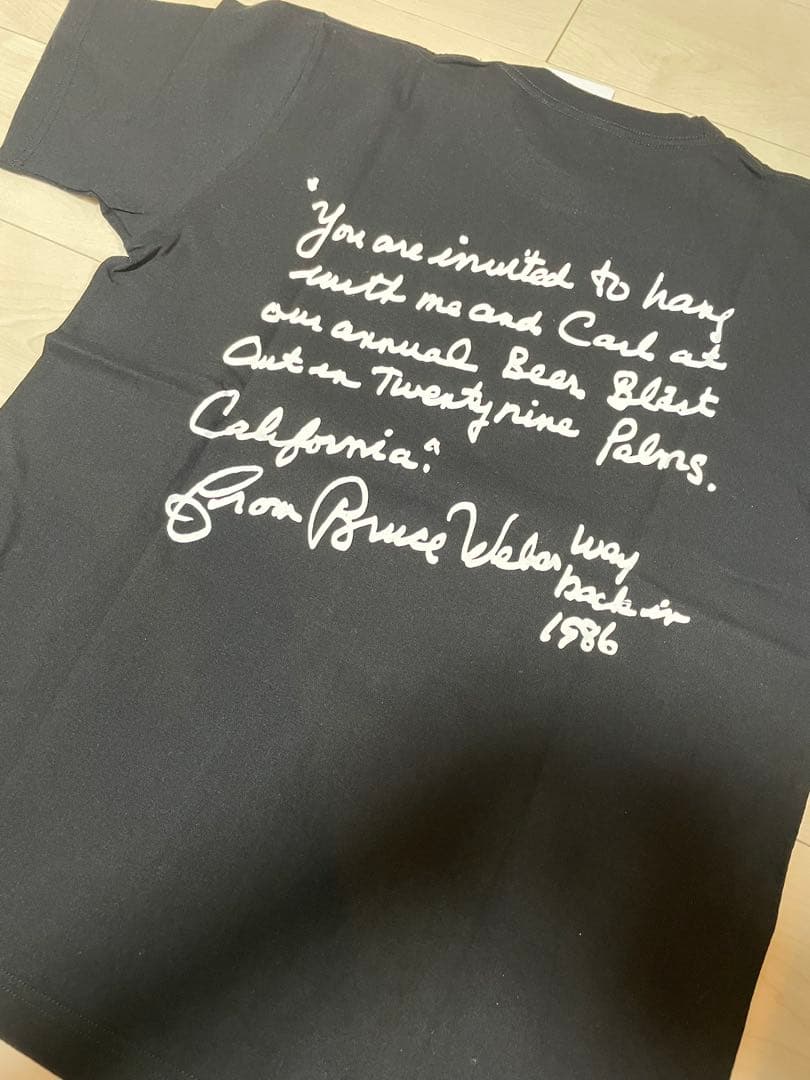 "You are invited to hang
with me and Carl at
our annual Beer Blast
Out in Twentynine Palms.
California."
from Bruce Weber way
back in
1986